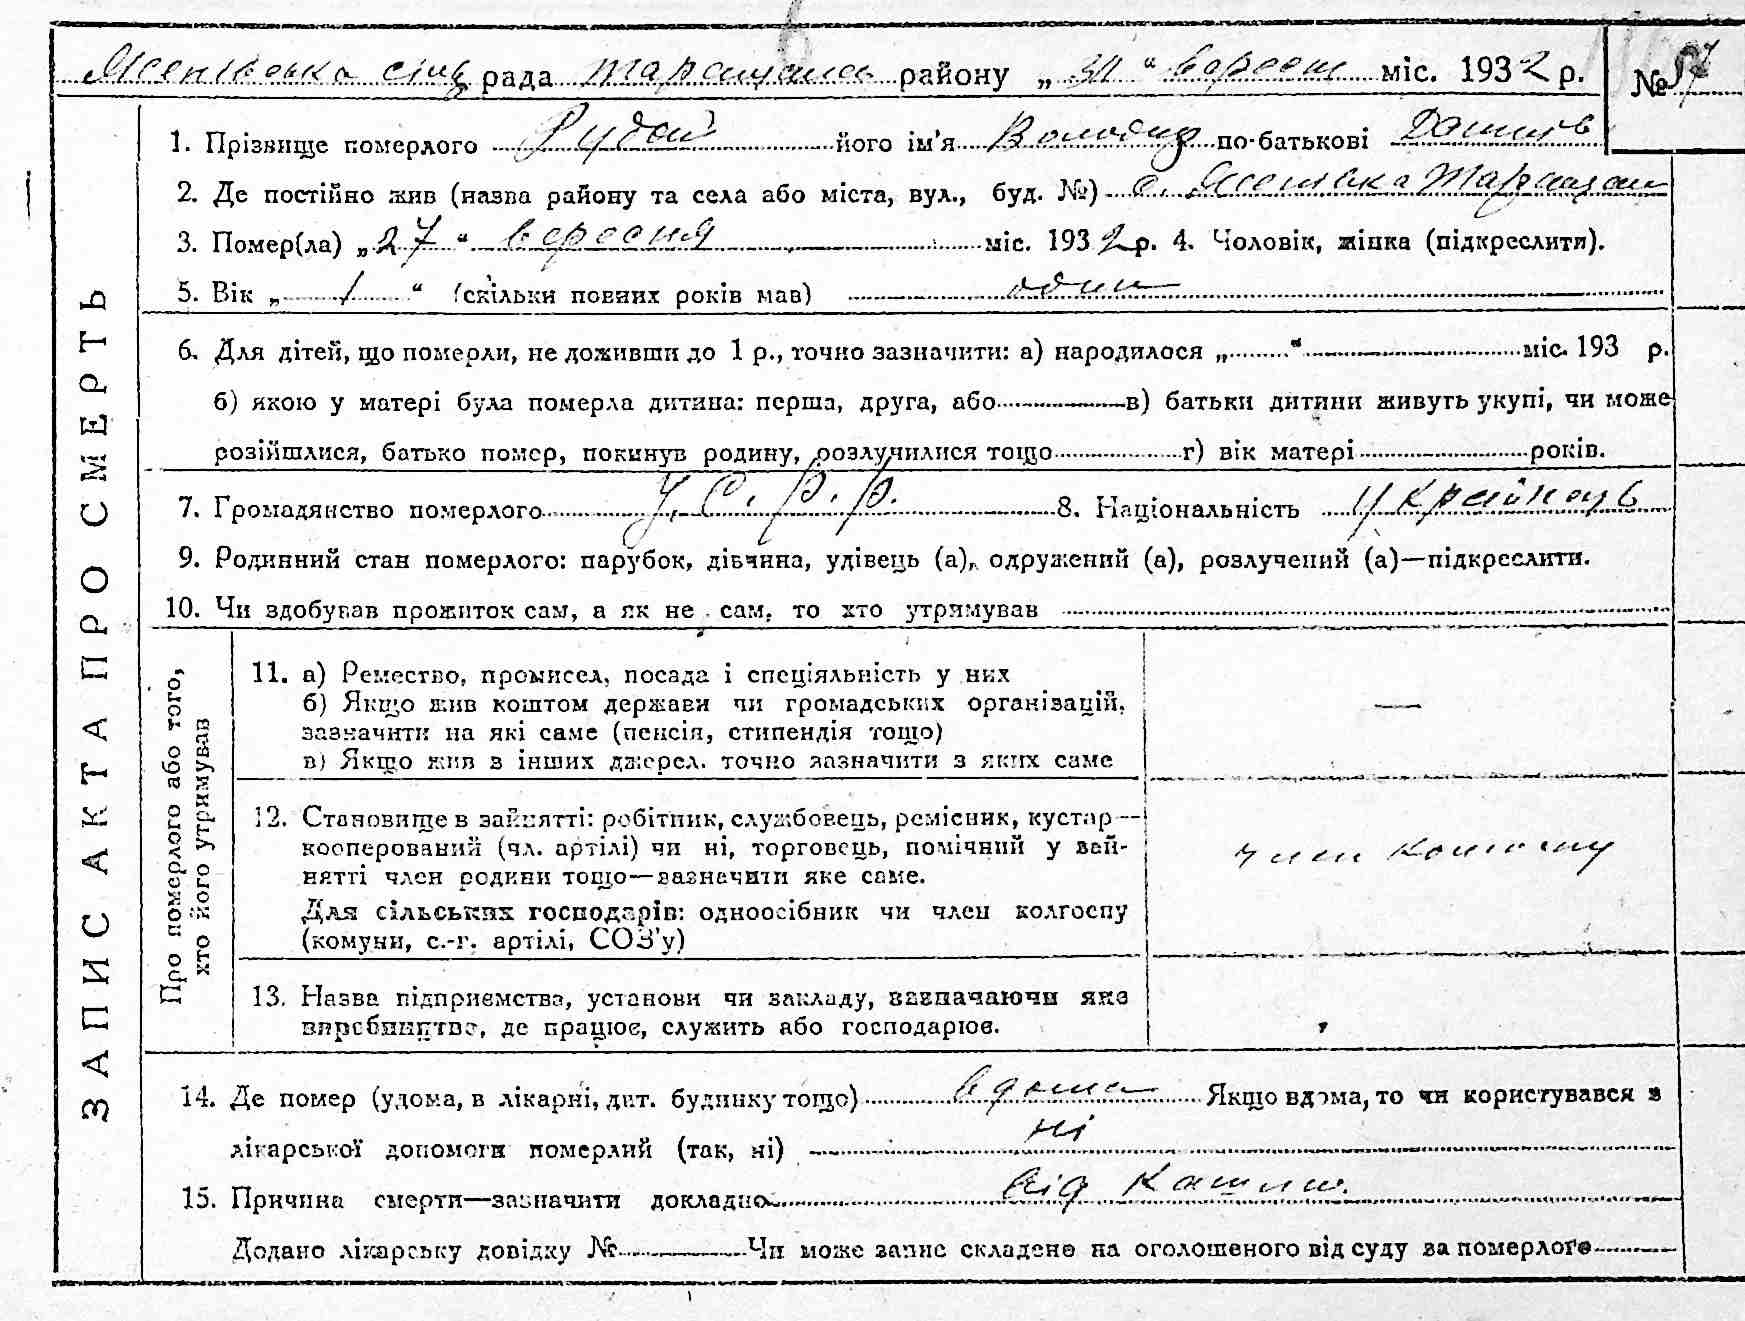 сілц рада район у „ " міс. 1932 р. №
1. Прізвище померлого Рудой його ім'я Володир по-батькові
2. Де постійно жив (назва району та села або міста, вул., буд. №) с.
3. Помер(ла) „27" вересня міс. 1932 р. 4. Чоловік, жінка (підкреслити).
5. Вік „1" (скільки повних років мав) один
6. Для дітей, що померли, не доживши до 1 р., точно зазначити: а) народилося „ " міс. 193 р.
б) якою у матері була померла дитина: перша, друга, або в) батьки дитини живуть укупі, чи може
розійшлися, батько помер, покинув родину, розлучилися тощо г) вік матері років.
7. Громадянство померлого У.С.Р.Р. 8. Національність
9. Родинний стан померлого: парубок, дівчина, удівець (а), одружений (а), розлучений (а)—підкреслити.
10. Чи здобував прожиток сам, а як не сам, то хто утримував
ЗАПИС АКТА ПРО СМЕРТЬ
Про померлого або того,
хто його утримував
11. а) Ремество, промисел, посада і спеціяльність у них
б) Якщо жив коштом держави чи громадських організацій,
зазначити на які саме (пенсія, стипендія тощо)
в) Якщо жив з інших джерел, точно зазначити з яких саме
—
12. Становище в зайнятті: робітник, службовець, ремісник, кустар—
кооперований (чл. артілі) чи ні, торговець, помічний у зай-
нятті член родини тощо—зазначити яке саме.
Для сільських господарів: одноосібник чи член колгоспу
(комуни, с.-г. артілі, СОЗ'у)
член
13. Назва підприємства, установи чи закладу, зазначаючи яке
виробництво, де працює, служить або господарює.
14. Де помер (удома, в лікарні, дит. будинку тощо) вдома Якщо вдома, то чи користувався з
лікарської допомоги померлий (так, ні) ні
15. Причина смерти—зазначити докладно від
Додано лікарську довідку № Чи може запис складено на оголошеного від суду за померлого